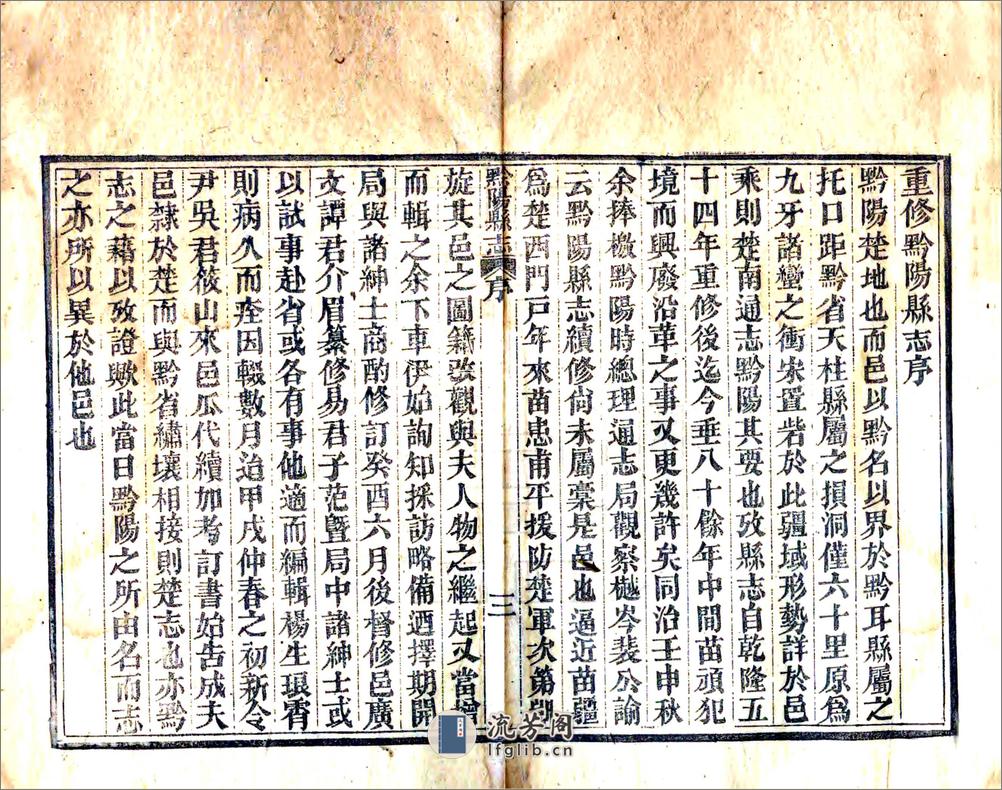 重修黔陽縣志序
黔陽楚地也而邑以黔名以界於黔耳縣屬之
托口距黔省天柱縣屬之損洞僅六十里原爲
九牙諸蠻之衝宋置砦於此疆域形勢詳於邑
乘則楚南通志黔陽其要也攷縣志自乾隆五
十四年重修後迄今垂八十餘年中間苗頑犯
境而興廢沿革之事又更幾許矣同治壬申秋
余捧檄黔陽時總理通志局觀察樾岑裴公諭
云黔陽縣志續修尙未屬稾是邑也逼近苗疆
爲楚西門戸年來苗患甫平援防楚軍次第卽
黔陽縣志 序 三
旋其邑之圖籍攷觀與夫人物之繼起又當增
而輯之余下車伊始詢知採訪略備迺擇期開
局與諸紳士商酌修訂癸酉六月後督修邑廣
文譚君介眉纂修易君子范曁局中諸紳士或
以試事赴省或各有事他適而編輯楊生琅霄
則病久而痊因輟數月迨甲戌仲春之初新令
尹吳君筱山來邑瓜代續加考訂書始告成夫
邑隸於楚而與黔省繡壤相接則楚志也亦黔
志之藉以攷證歟此當日黔陽之所由名而志
之亦所以異於他邑也
流芳阁
lfglib.cn